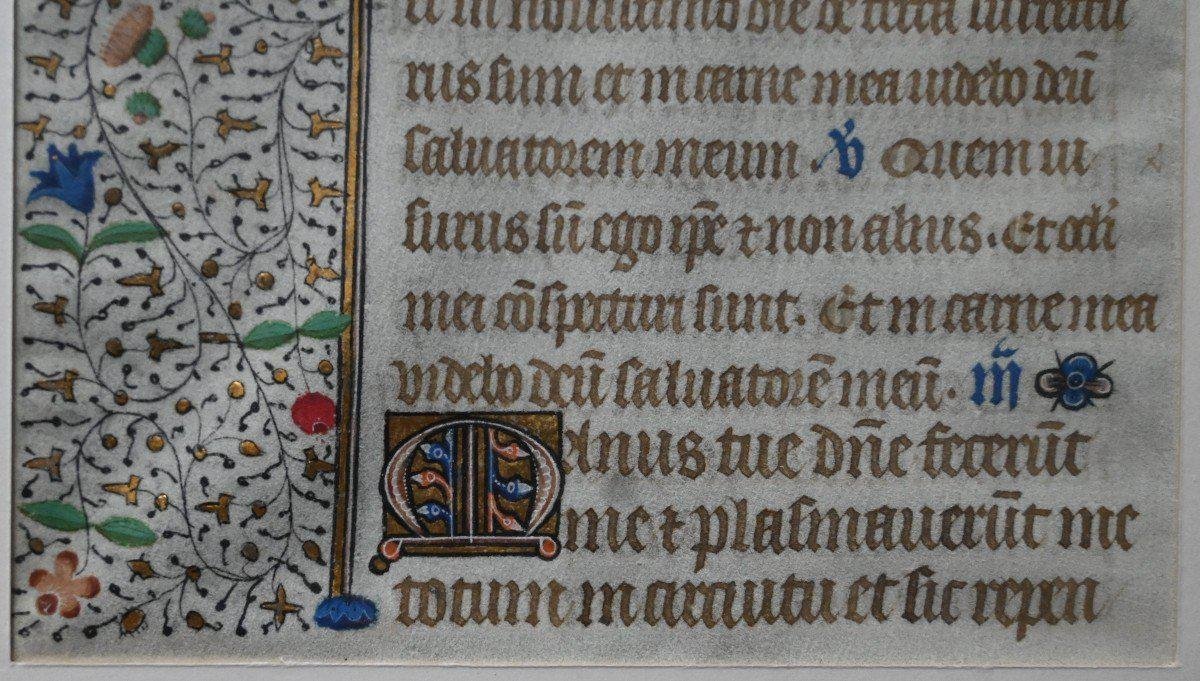 ti in nouissimo die de terra surrectu
rus sum et in carne mea uidebo deū
saluatorem meum. v̄ Quem ui
surus sū ego ip̄e ⁊ non alius. Et ocli
mei cōspecturi sunt. Et in carne mea
videbo deū saluatorē meū.
Manus tue dn̄e fecerūt
me ⁊ plasmauerūt me
totum in circuitu et sic repen